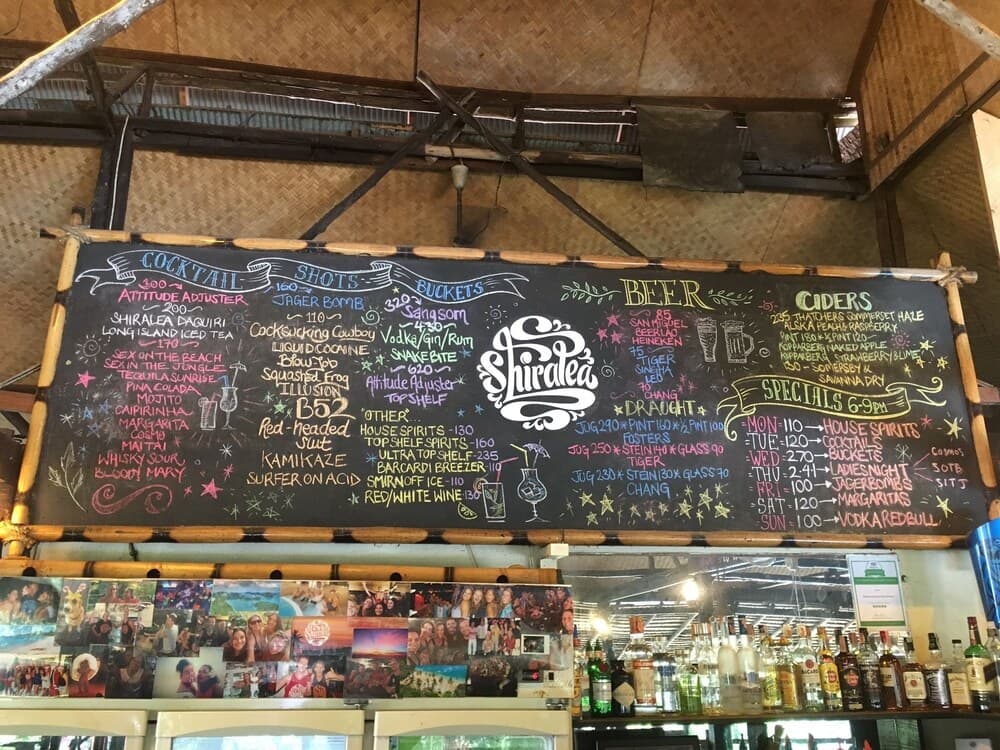 COCKTAIL
300
ATTITUDE ADJUSTER
200
SHIRALEA DAQUIRI
LONG ISLAND ICED TEA
170
SEX ON THE BEACH
SEX IN THE JUNGLE
TEQUILA SUNRISE
PINA COLADA
MOJITO
CAIPIRINHA
MARGARITA
COSMO
MAITAI
WHISKY SOUR
BLOODY MARY
SHOTS
160
JAGER BOMB
110
Cocksucking Cowboy
LIQUID COCAINE
Blow Job
Squashed Frog
ILLUSION
B52
Red-headed
slut
KAMIKAZE
SURFER ON ACID
BUCKETS
320
Sangsom
430
Vodka/Gin/Rum
SNAKE BITE
620
Attitude Adjuster
TOP SHELF
"OTHER"
HOUSE SPIRITS -130
TOP SHELF SPIRITS -160
ULTRA TOP SHELF -235
BARCARDI BREEZER -110
SMIRNOFF ICE -110
RED/WHITE WINE -130
Shiralea
BEER
85
SAN MIGUEL
BEERLAO
HEINEKEN
75
TIGER
SINGHA
LEO
70
CHANG
DRAUGHT
JUG 290 * PINT 160 * ½ PINT 100
FOSTERS
JUG 250 * STEIN 140 * GLASS 90
TIGER
JUG 230 * STEIN 130 * GLASS 70
CHANG
CIDERS
235 THATCHERS SOMMERSET HAZE
ALSKA PEACH & RASPBERRY
PINT 180 * ½ PINT 120
KOPPARBERG NAKED APPLE
KOPPARBERG STRAWBERRY & LIME
130 - SOMERSBY &
SAVANNA DRY
SPECIALS 6-9PM
MON - 110 → HOUSE SPIRITS
TUE - 120 → COCKTAILS
WED - 270 → BUCKETS
THU - 2-4-1 → LADIES NIGHT
COSMOS
SOTB
SITJ
FRI - 100 → JAGERBOMBS
SAT - 120 → MARGARITAS
SUN - 100 → VODKA REDBULL